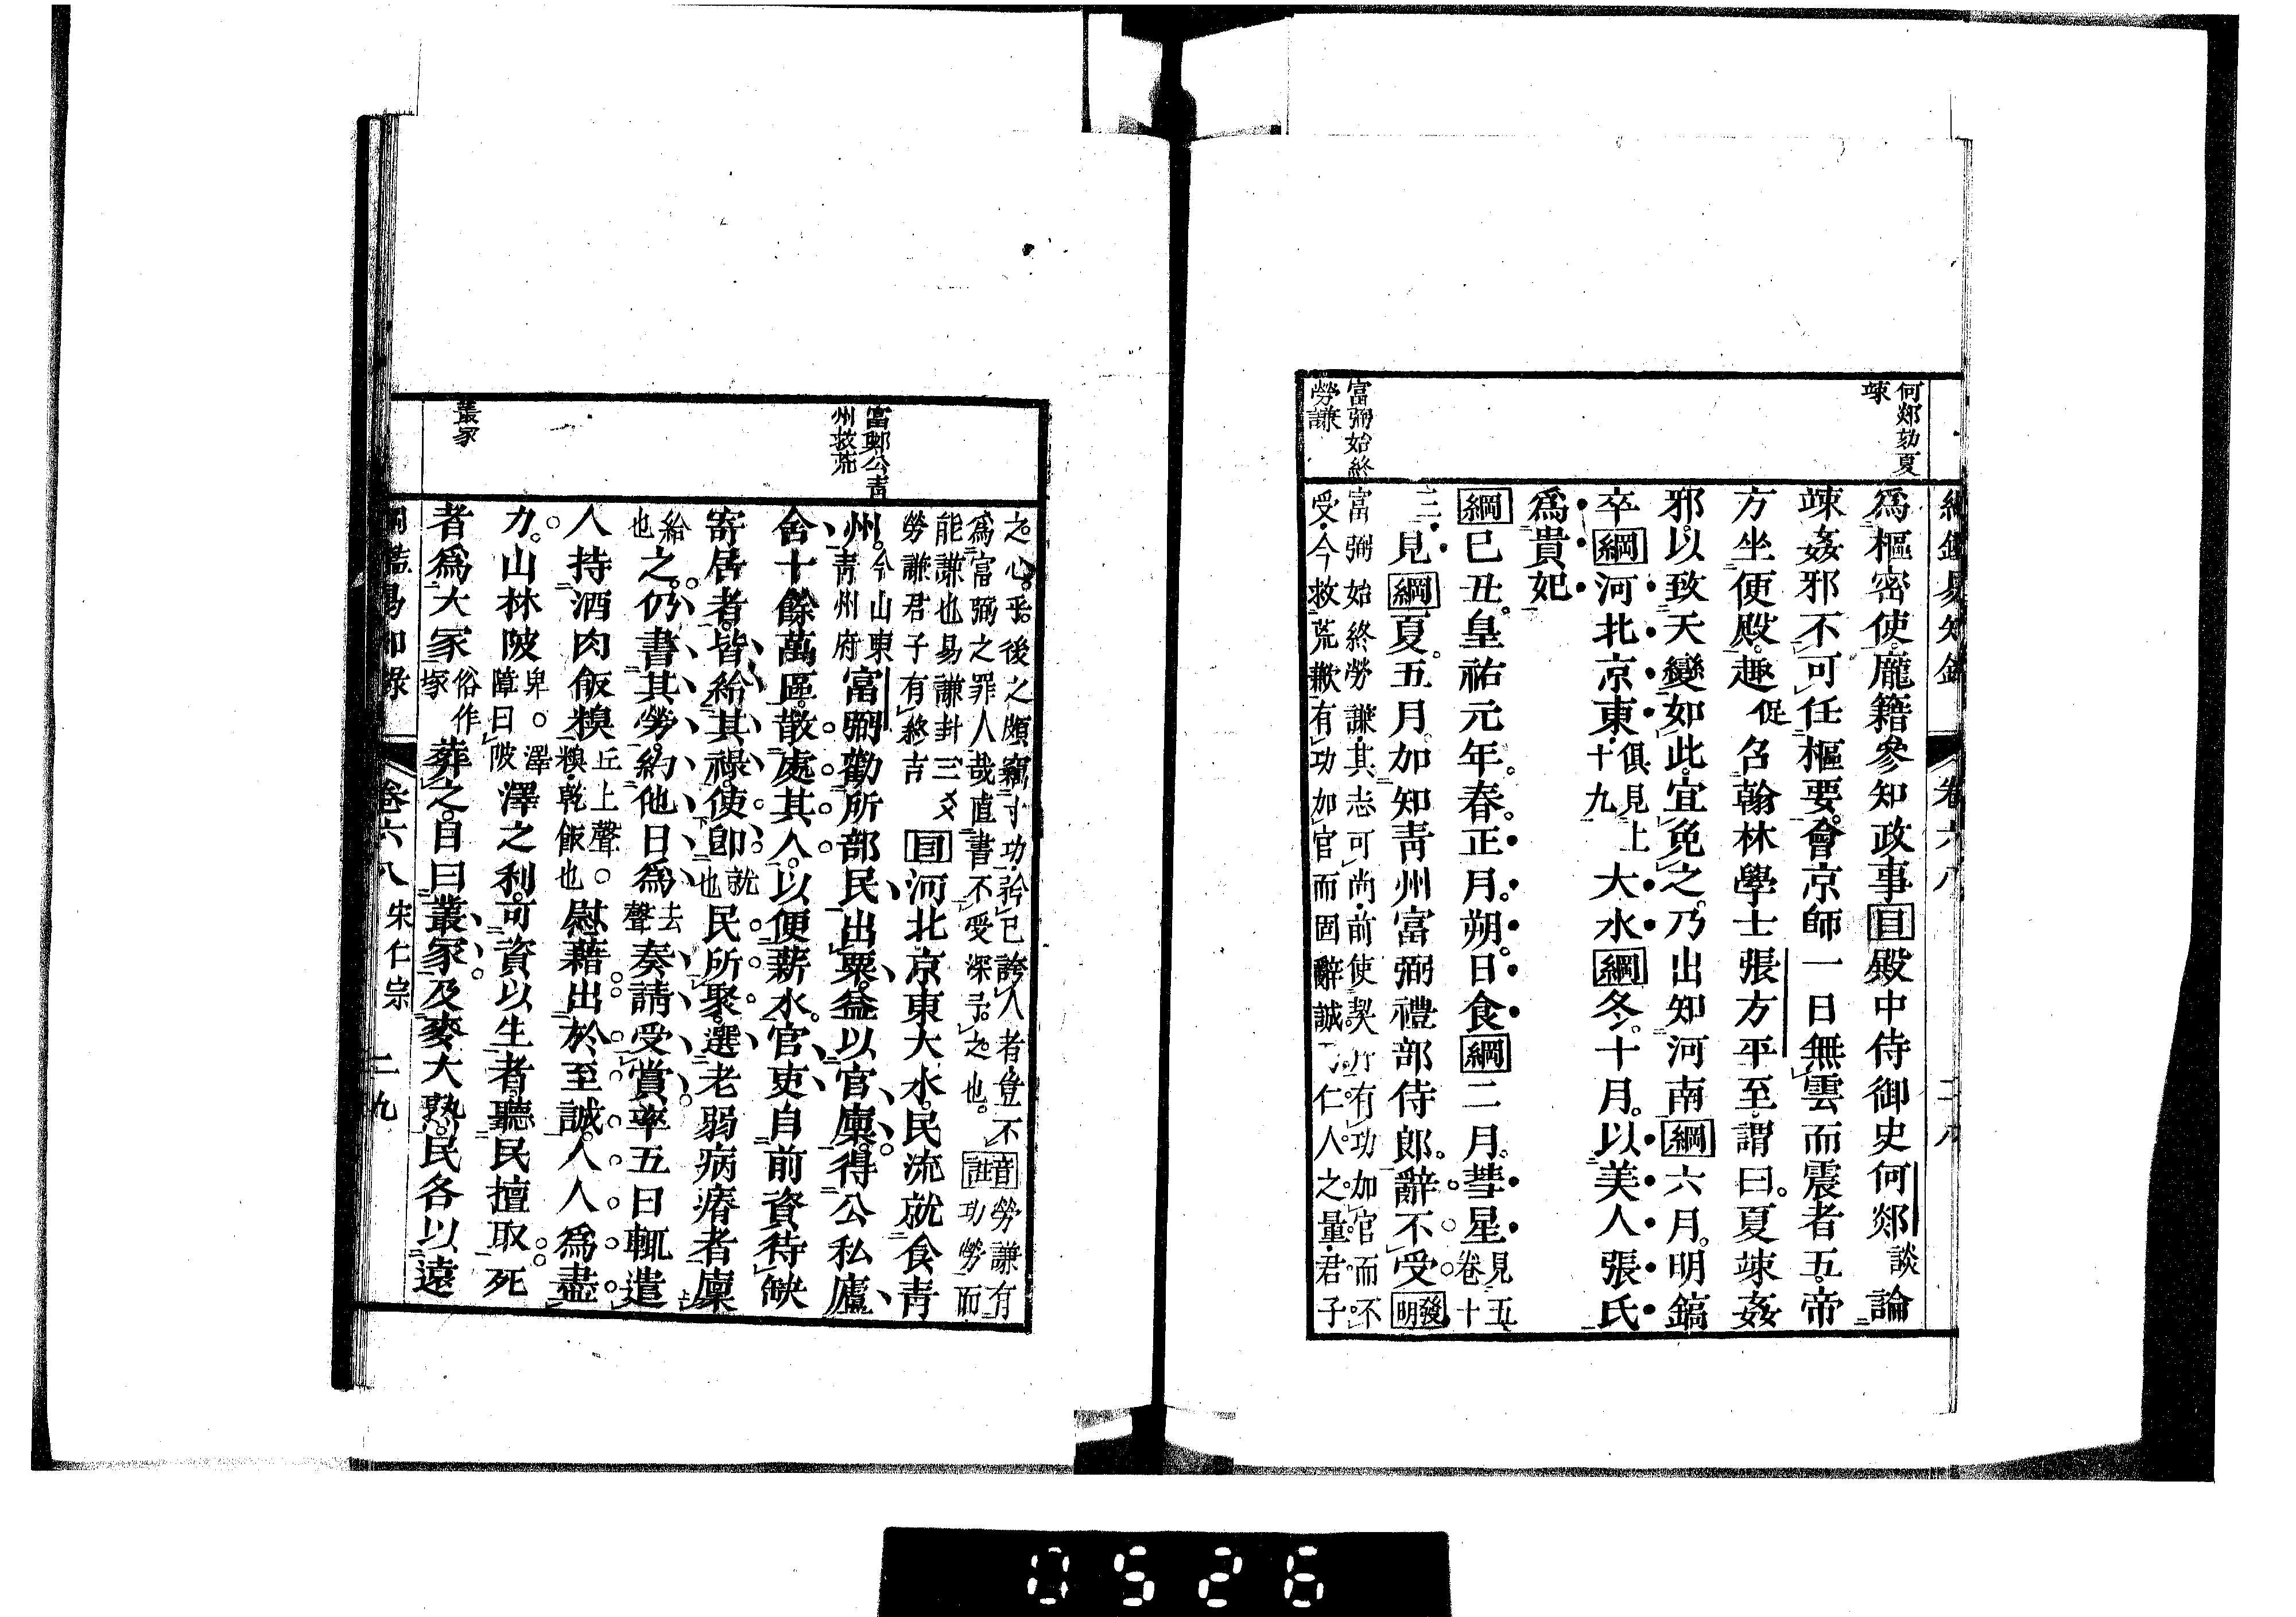 綱鑑易知錄 卷六八 二八
何郯劾夏
竦
爲樞密使龐籍參知政事目殿中侍御史何郯談論
竦姦邪不可任樞要會京師一日無雲而震者五帝
方坐便殿趣促召翰林學士張方平至謂曰夏竦姦
邪以致天變如此宜免之乃出知河南綱六月明鎬
卒綱河北京東俱見上
十九大水綱冬十月以美人張氏
爲貴妃
綱己丑皇祐元年春正月朔日食綱二月彗星見五
卷十
三見綱夏五月加知青州富弼禮部侍郎辭不受發明
富弼始終
勞謙
富弼始終勞謙其志可尚前使契丹有功加官而不
受今救荒歉有功加官而固辭誠仁人之量君子
之心乎後之頗竊寸功矜己誇人者豈不
爲富弼之罪人哉直書不受深予之也音勞謙有
註功勞而
能謙也易謙卦三爻
勞謙君子有終吉
目河北京東大水民流就食青
富鄭公青
州救荒
州今山東
青州府富弼勸所部民出粟益以官廩得公私廬
舍十餘萬區散處其人以便薪水官吏自前資待缺
寄居者皆給其祿使卽就
也民所聚選老弱病瘠者廩
給
也之仍書其勞約他日爲去
聲奏請受賞率五日輒遣
人持酒肉飯糗丘上聲
糗乾飯也慰藉出於至誠人人爲盡
力山林陂卑澤
障曰陂澤之利可資以生者聽民擅取死
叢冢
者爲大冢俗作
塚葬之目曰叢冢及麥大熟民各以遠
綱鑑易知錄 卷六八 宋仁宗 二九
0526